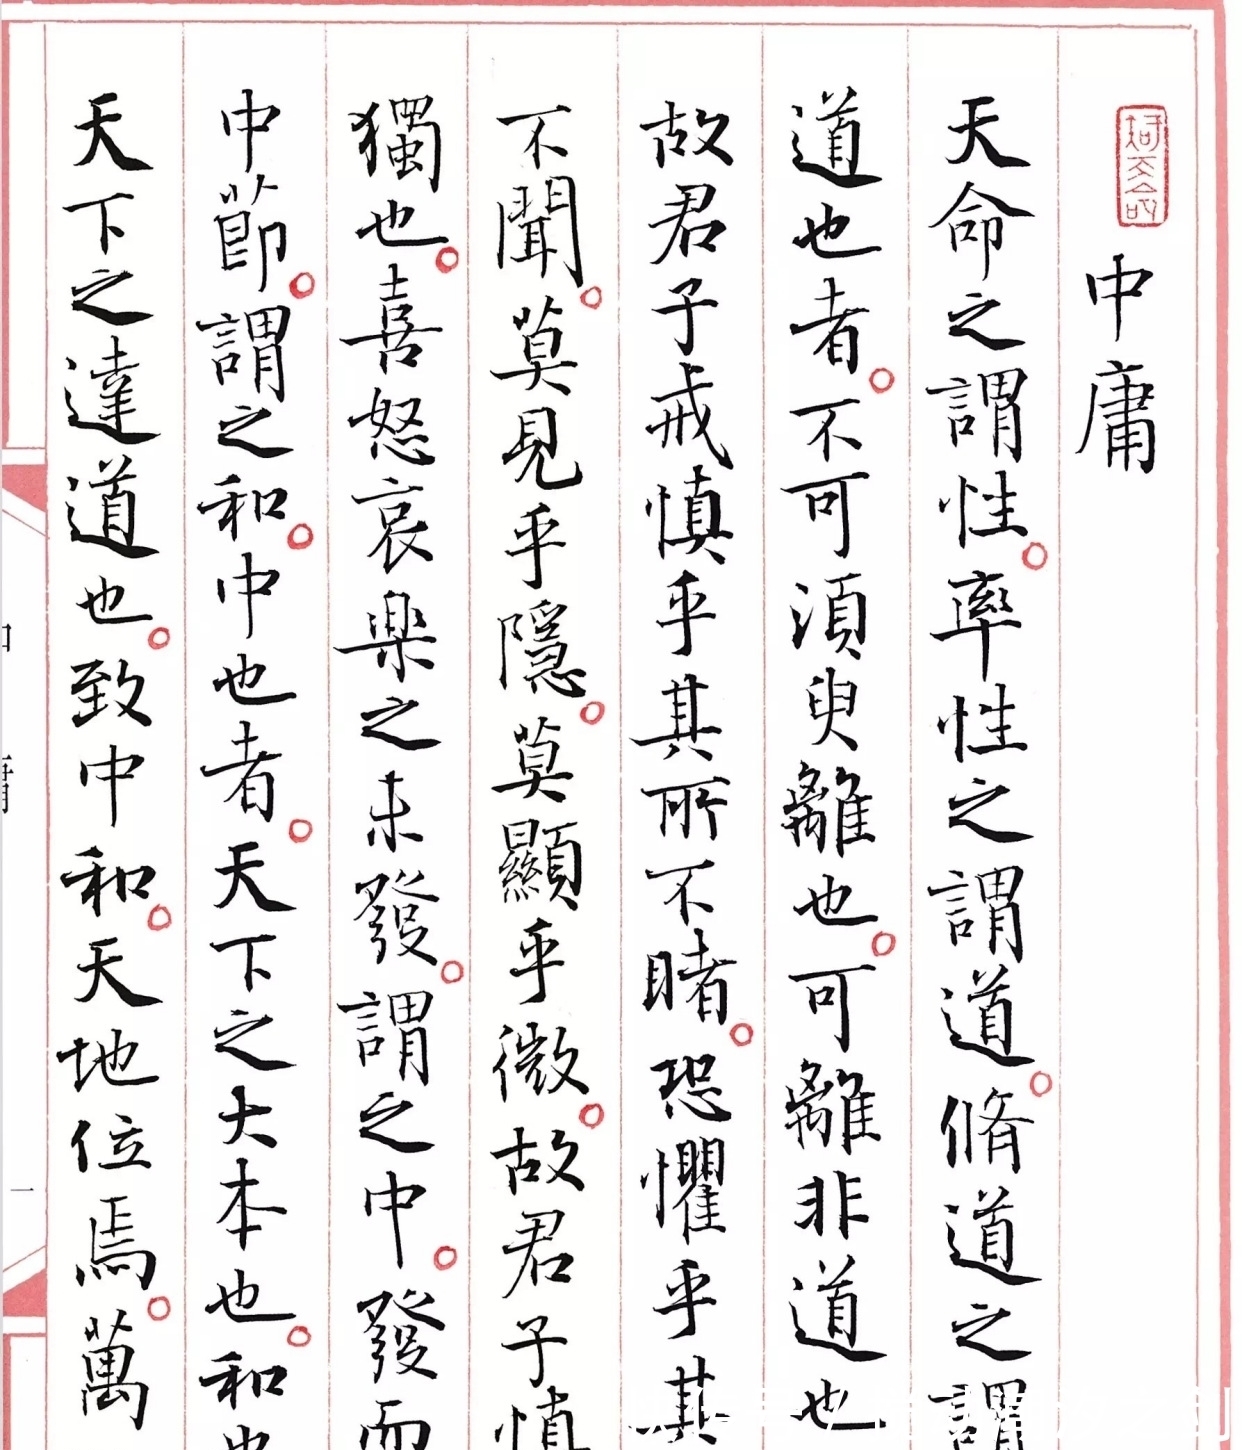 中庸
天命之謂性。率性之謂道。脩道之謂
道也者。不可須臾離也。可離非道也
故君子戒慎乎其所不睹。恐懼乎其
不聞。莫見乎隱。莫顯乎微。故君子慎
獨也。喜怒哀樂之未發。謂之中。發而
中節。謂之和。中也者。天下之大本也。和也
天下之達道也。致中和。天地位焉。萬